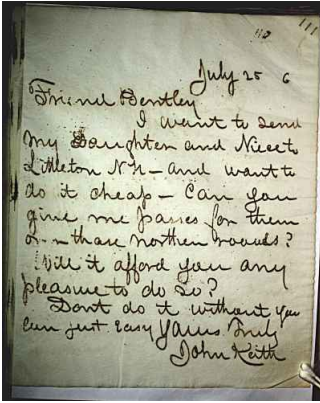 111
July 25 6
Friend Bentley
I want to send
my Daughter and Niece to
Littleton N.H - and want to
do it cheap - Can you
give me passes for them
on those northern roads?
Will it afford you any
pleasure to do so?
Dont do it without you
can just Easy Yours Truly
John Keith